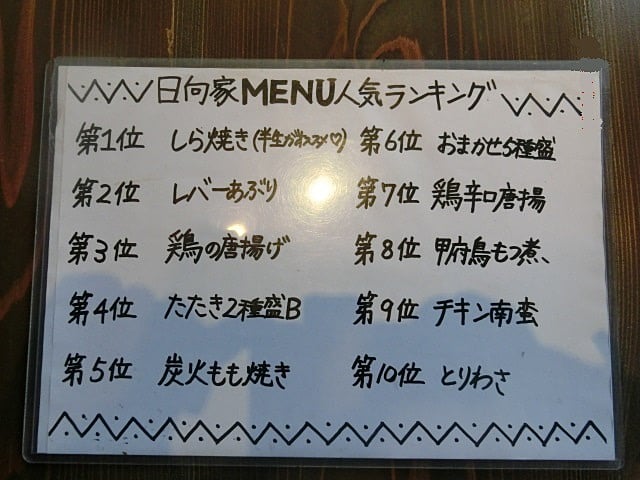 日向家MENU人気ランキング
第1位 しら焼き(半生がおススメ♡)
第2位 レバーあぶり
第3位 鶏の唐揚げ
第4位 たたき2種盛B
第5位 炭火もも焼き
第6位 おまかせ5種盛
第7位 鶏辛口唐揚
第8位 甲府鳥もつ煮、
第9位 チキン南蛮
第10位 とりわさ